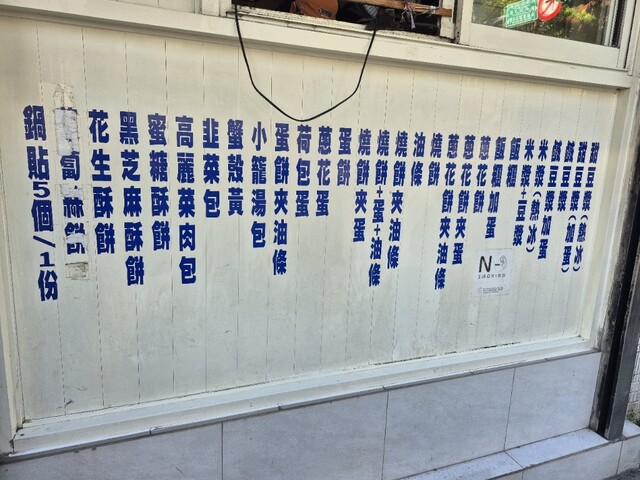 甜豆漿(熱冰)
甜豆漿加蛋
鹹豆漿(加蛋)
鹹豆漿
米漿加蛋
米漿(熱冰)
米漿+豆漿
飯糰
飯糰加蛋
蔥花餅
蔥花餅夾蛋
蔥花餅夾油條
燒餅
油條
燒餅夾油條
燒餅+蛋+油條
燒餅夾蛋
蛋餅
蔥花蛋
荷包蛋
蛋餅夾油條
小籠湯包
蟹殼黃
韭菜包
高麗菜肉包
蜜糖酥餅
黑芝麻酥餅
花生酥餅
鍋貼5個/1份
N-